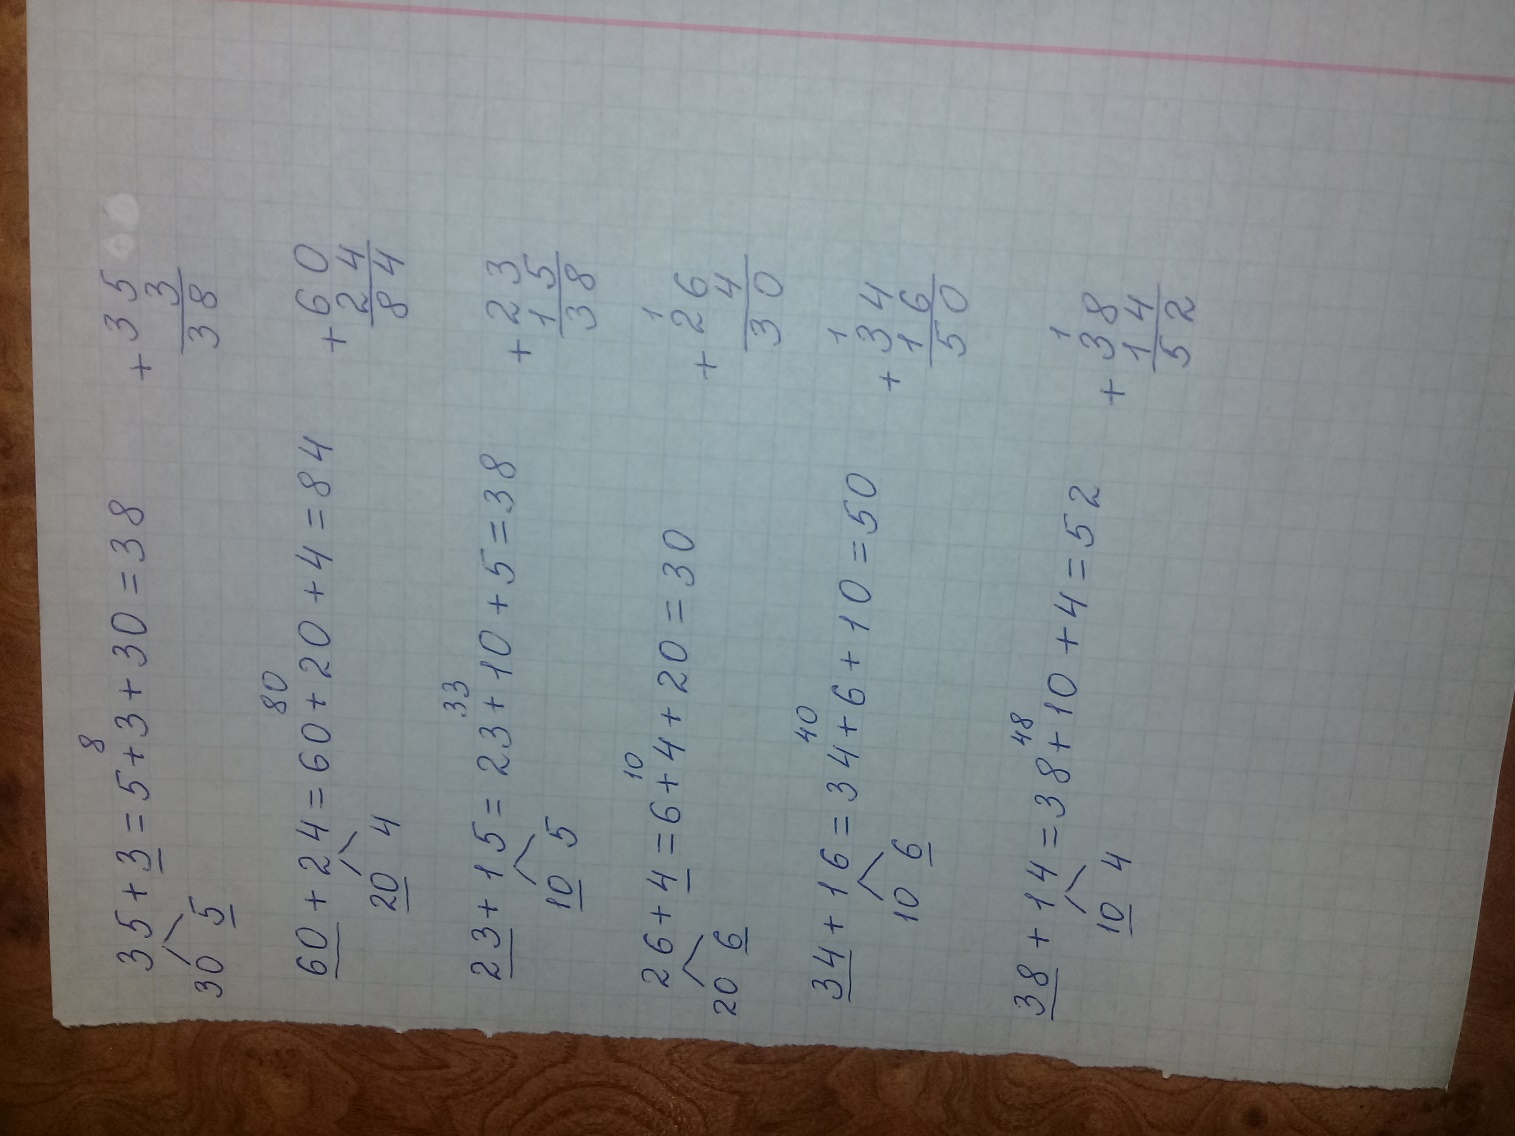 8
35 + 3 = 5 + 3 + 30 = 38
30 5
+ 35
3
38
80
60 + 24 = 60 + 20 + 4 = 84
20 4
+ 60
24
84
33
23 + 15 = 23 + 10 + 5 = 38
10 5
+ 23
15
38
10
26 + 4 = 6 + 4 + 20 = 30
20 6
1
+ 26
4
30
40
34 + 16 = 34 + 6 + 10 = 50
10 6
1
+ 34
16
50
48
38 + 14 = 38 + 10 + 4 = 52
10 4
1
+ 38
14
52